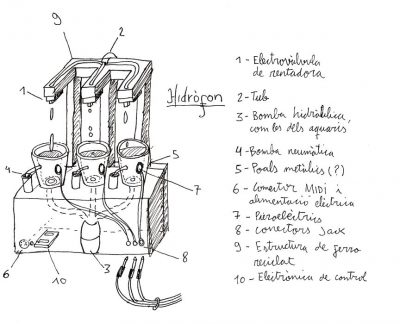 9
2
Hidròfon
1
4
5
7
6
10
3
8
1 - Electrovàlvula
de rentadora
2 - Tub
3 - Bomba hidràulica,
com les dels aquaris
4 - Bomba neumàtica
5 - Poals metàl·lics (?)
6 - Conector MIDI i
alimentació elèctrica
7 - Piezoelèctrics
8 - conectors Jack
9 - Estructura de ferro
reciclat
10 - Electrònica de control